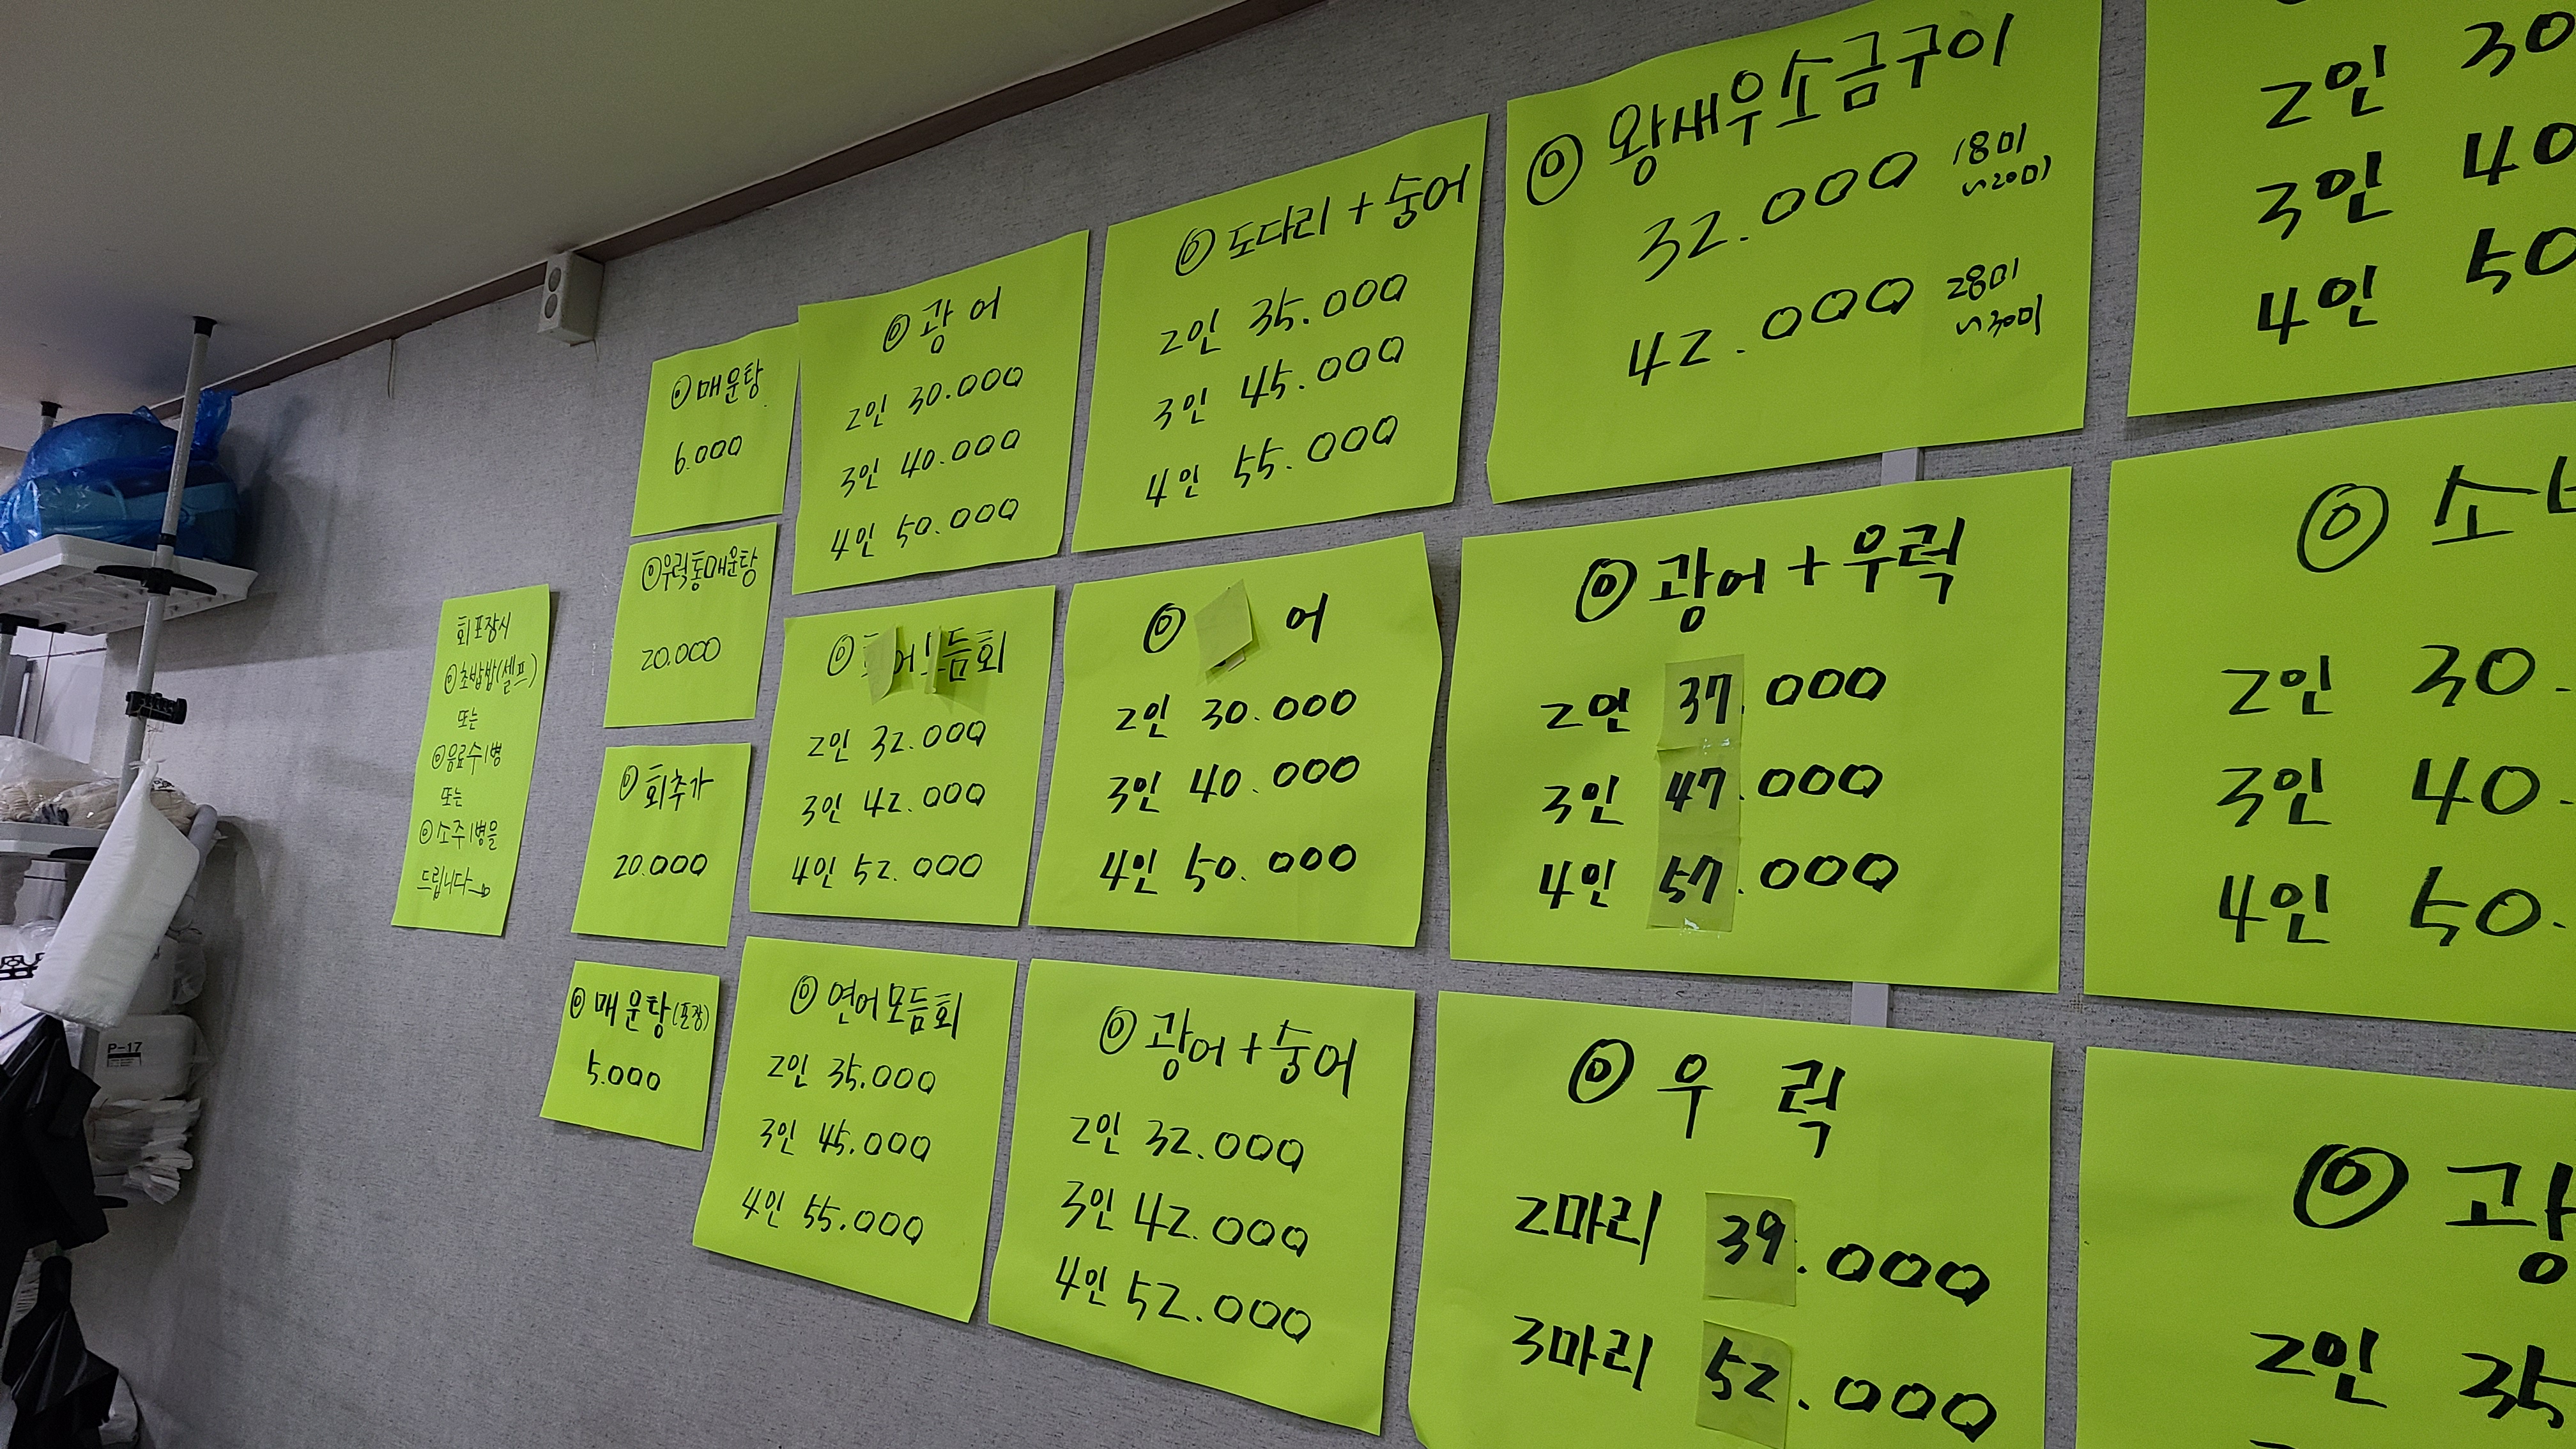 회포장시
◎초밥밥(셀프)
또는
◎음료수1병
또는
◎소주1병을
드립니다
◎매운탕
6.000
◎우럭통매운탕
20.000
◎회추가
20.000
◎매운탕(포장)
5.000
◎광어
2인 30.000
3인 40.000
4인 50.000
◎ 어 듬회
2인 32.000
3인 42.000
4인 52.000
◎연어모듬회
2인 35.000
3인 45.000
4인 55.000
◎도다리+숭어
2인 35.000
3인 45.000
4인 55.000
◎ 어
2인 30.000
3인 40.000
4인 50.000
◎광어+숭어
2인 32.000
3인 42.000
4인 52.000
◎왕새우소금구이
32.000 18미
~20미
42.000 28미
~30미
◎광어+우럭
2인 37.000
3인 47.000
4인 57.000
◎우럭
2마리 39.000
3마리 52.000
2인 30
3인 40
4인 50
◎소
2인 30.
3인 40.
4인 50.
◎광
2인 35
P-17